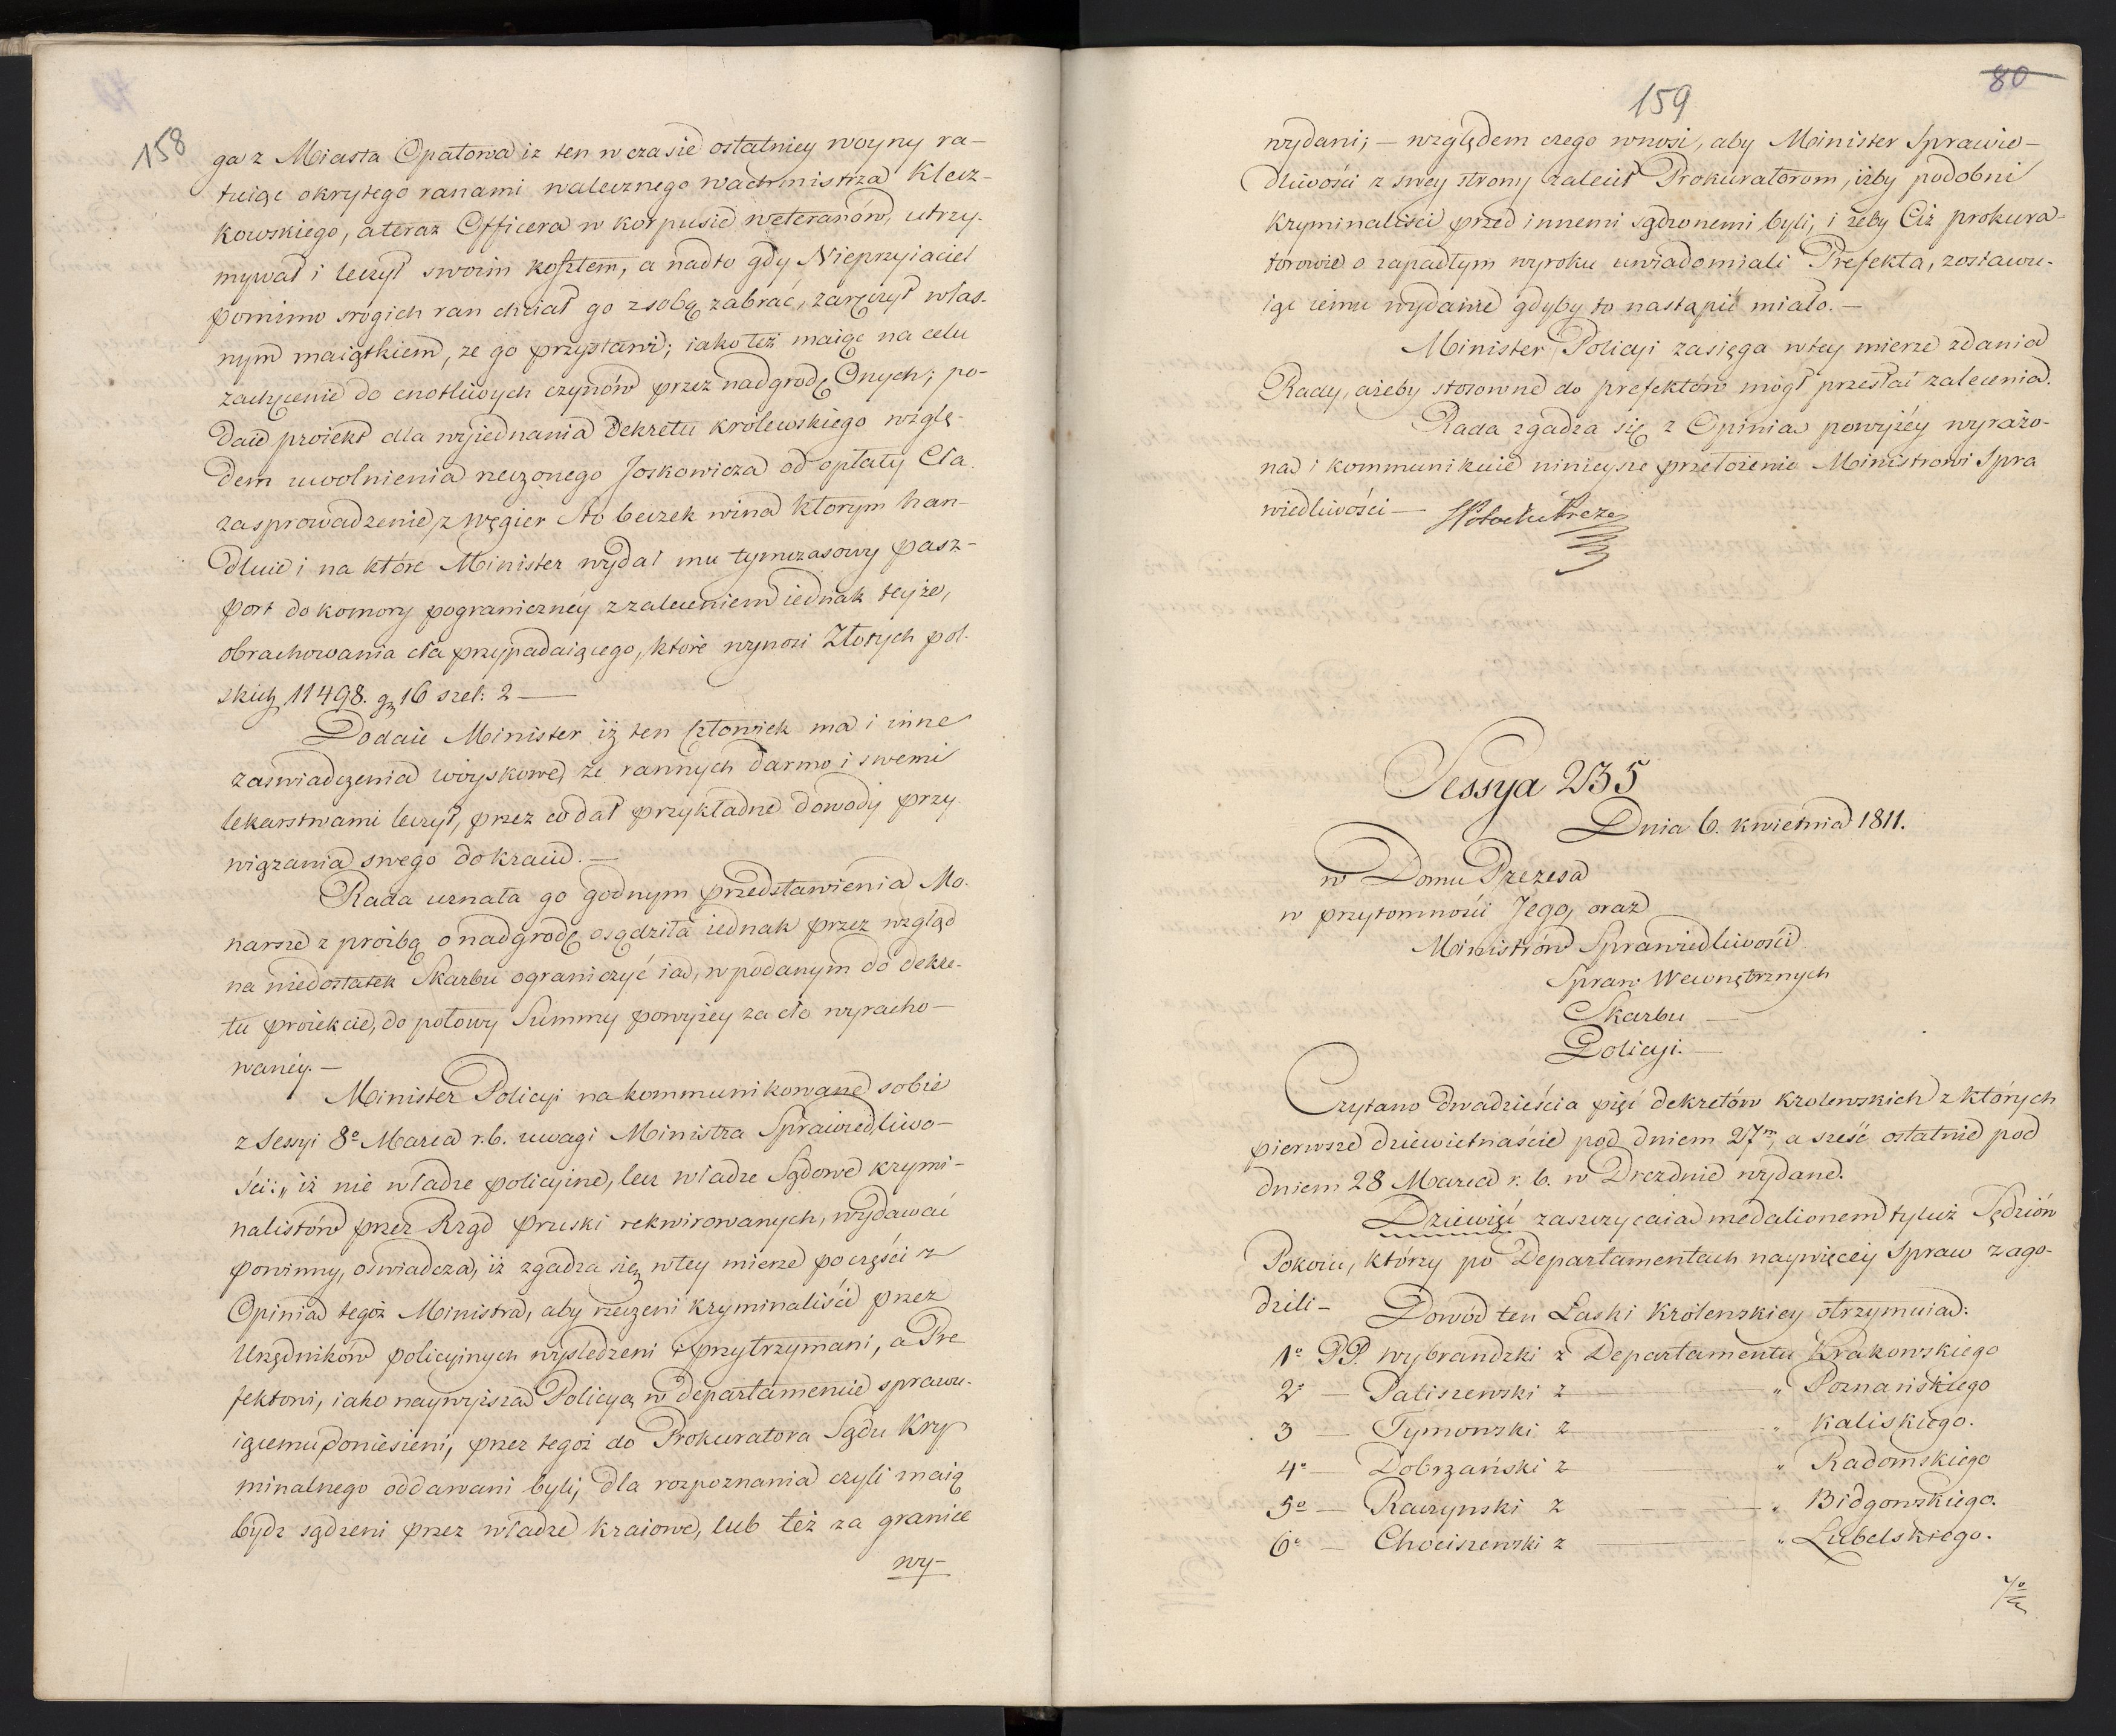 158
ga z Miasta Opatowa iz ten w czasie ostatniey woyny ra-
tuiąc okrytego ranami walecznego wachmistrza Klecz-
kowskiego, a teraz Officera w korpusie weteranów, utrzy-
mywał i leczył swoim kosztem, a nadto gdy Nieprzyiaciel
pomimo srogich ran chciał go z sobą zabrać, zaręczył włas-
nym maiątkiem, ze go przystawi; iako też maiąc na celu
zachęcenie do cnotliwych czynów przez nadgrodę Onych; po-
daie proiekt dla wyiednania Dekretu królewskiego wzglę-
dem uwolnienia rzeczonego Joskowicza od opłaty Cła
za sprowadzenie z węgier sto beczek wina ktorym han-
dluie i na które Minister wydał mu tymczasowy pasz-
port do komory pograniczney z zaleceniem iednak teyże,
obrachowania cła przypadaiącego, które wynosi Złotych pol-
skich 11498. g 16 szel: 2 —
Dodaie Minister iż ten człowiek ma i inne
zaswiadczenia woyskowe, że rannych darmo i swemi
lekarstwami leczył, przez co dał przykładne dowody przy
wiązania swego do kraiu. —
Rada uznała go godnym przedstawienia Mo-
narsze z proźbą o nadgrodę osądziła iednak przez wzgląd
na niedostatek Skarbu ograniczyć ią, w podanym do dekre-
tu proiekcie, do połowy Summy powyżey za cło wyracho-
waney. —
Minister Policyi na kommunikowane sobie
z Sessyi 8º Marca r. b. uwagi Ministra Sprawiedliwo-
ści: „ iż nie władze policyine, lecz władze Sądowe krymi-
nalistów przez Rząd pruski rekwirowanych, wydawać
powinny, oswiadcza, iż zgadza się w tey mierze po części z
Opinią tegoż Ministra, aby rzeczeni kryminaliści przez
Urzędników policyinych wysledzeni i przytrzymani, a Pre
fektowi, iako naywyższą Policyą w departamencie sprawu-
iącemu doniesieni, przez tegoż do Prokuratora Sądu Kry
minalnego oddawani byli, dla rozpoznania czyli maią
bydz sądzeni przez władze kraiowe, lub też za granice
wy-
80
159
wydani; — względem czego wnosi, aby Minister Sprawie-
dliwości z swey strony zalecił Prokuratorom, iżby podobni
kryminaliści przed innemi sądzonemi byli, i żeby Ciż prokura-
torowie o zapadłym wyroku uwiadomiali Prefekta, zostawu-
iąc iemu wydanie gdyby to nastąpić miało. —
Minister Policyi zasięga w tey mierze zdania
Rady, ażeby stosowne do prefektów mógł przesłać zalecenia.
Rada zgadza się z Opinią powyżey wyrażo-
ną i kommunikuie ninieysze przełożenie Ministrowi Spra
wiedliwości —
Sessya 235
Dnia 6. kwietnia 1811.
w Domu Prezesa
w przytomności Jego, oraz
Ministrów Sprawiedliwości
Spraw Wewnętrznych
Skarbu —
Policyi. —
Czytano dwadzieścia pięć dekretów krolewskich z których
pierwsze dziewietnaście pod dniem 27m, a sześć ostatnie pod
dniem 28 Marca r. b. w Dreznie wydane.
Dziewięć zaszczycaią medalionem tyluż Sędziów
Pokoiu, którzy po Departamentach naywięcéy Spraw zago-
dzili — Dowód ten Łaski Królewskiey otrzymuią:
1º PP. wybrandzki z Departamentu Krakowskiego
2º — Paliszewski z — „ Poznańskiego
3 — Tymowski z — „ Kaliskiego.
4º — Dobrzański z — „ Radomskiego
5º — Raczynski z — „ Bidgowskiego.
6º — Chociszewski z — „ Lubelskiego.
7º